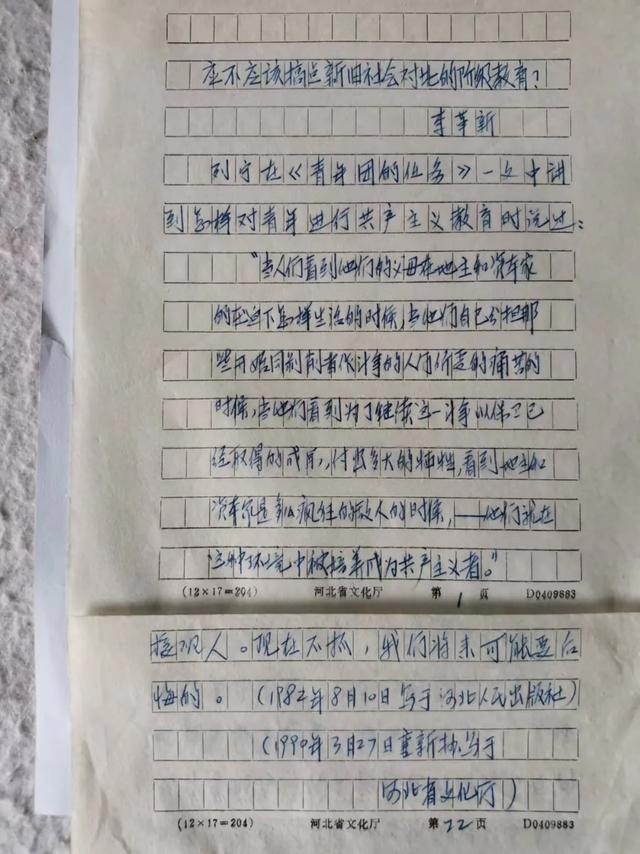 应不应该搞点新旧社会对比的阶级教育？
李革新
列宁在《青年团的任务》一文中讲
到怎样对青年进行共产主义教育时说过：
“当人们看到他们的父母在地主和资本家
的压迫下怎样生活的时候，当他们自己分担那
些开始同剥削者作斗争的人们所受的痛苦的
时候，当他们看到为了继续这一斗争以保卫已
经取得的成果，付出多大的牺牲，看到地主和
资本家是多么疯狂的敌人的时候，——他们就在
这种环境中被培养成为共产主义者。”
(12×17=204) 河北省文化厅 第 1 页 D0409883
接班人。现在不抓，我们将来可能要后
悔的。（1982年8月10日写于河北人民出版社）
（1990年3月27日重新抄写于
河北省文化厅）
(12×17=204) 河北省文化厅 第 22 页 D0409883